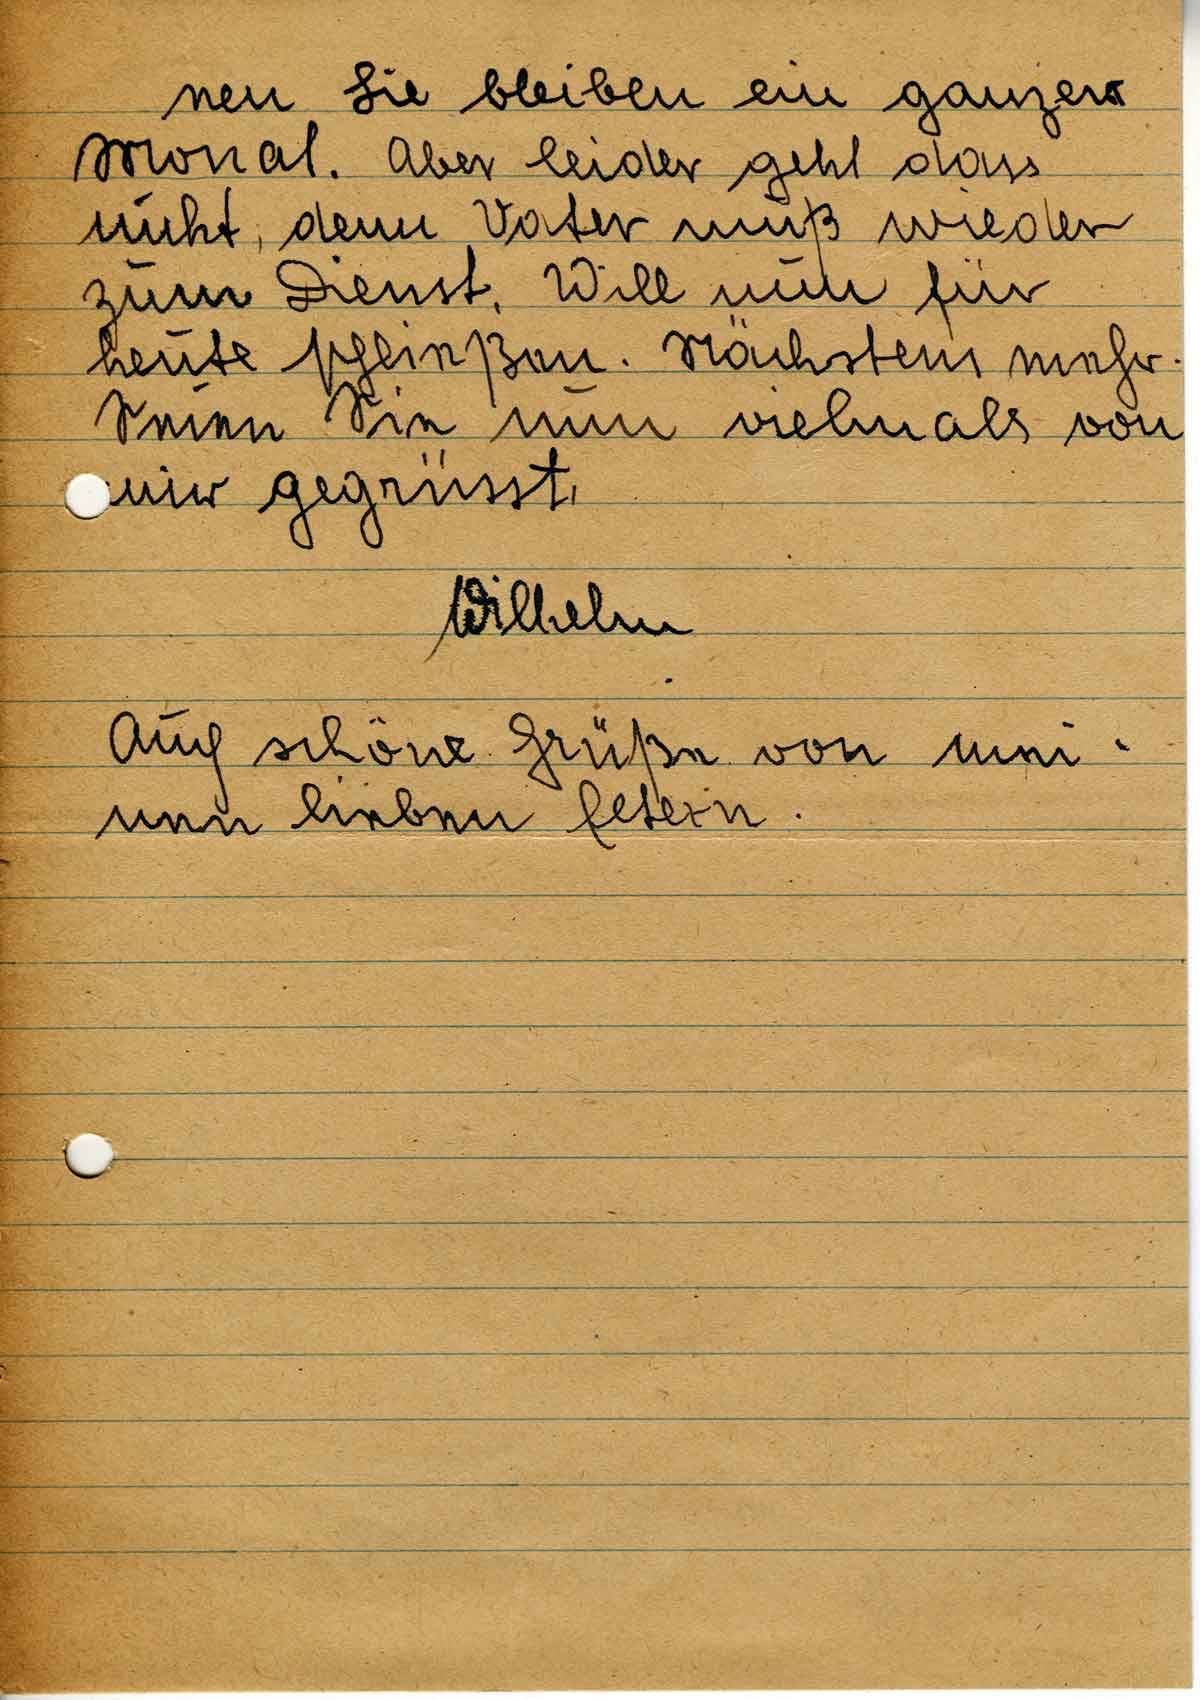 nen Sie bleiben ein ganzer
Monat. Aber leider geht dass
nicht, denn Vater muß wieder
zum Dienst. Will nun für
heute schließen. Nächstens mehr.
Seien Sie nun vielmals von
mir gegrüsst.
Wilhelm
Auch schöne Grüße von mei-
nen lieben Eltern.